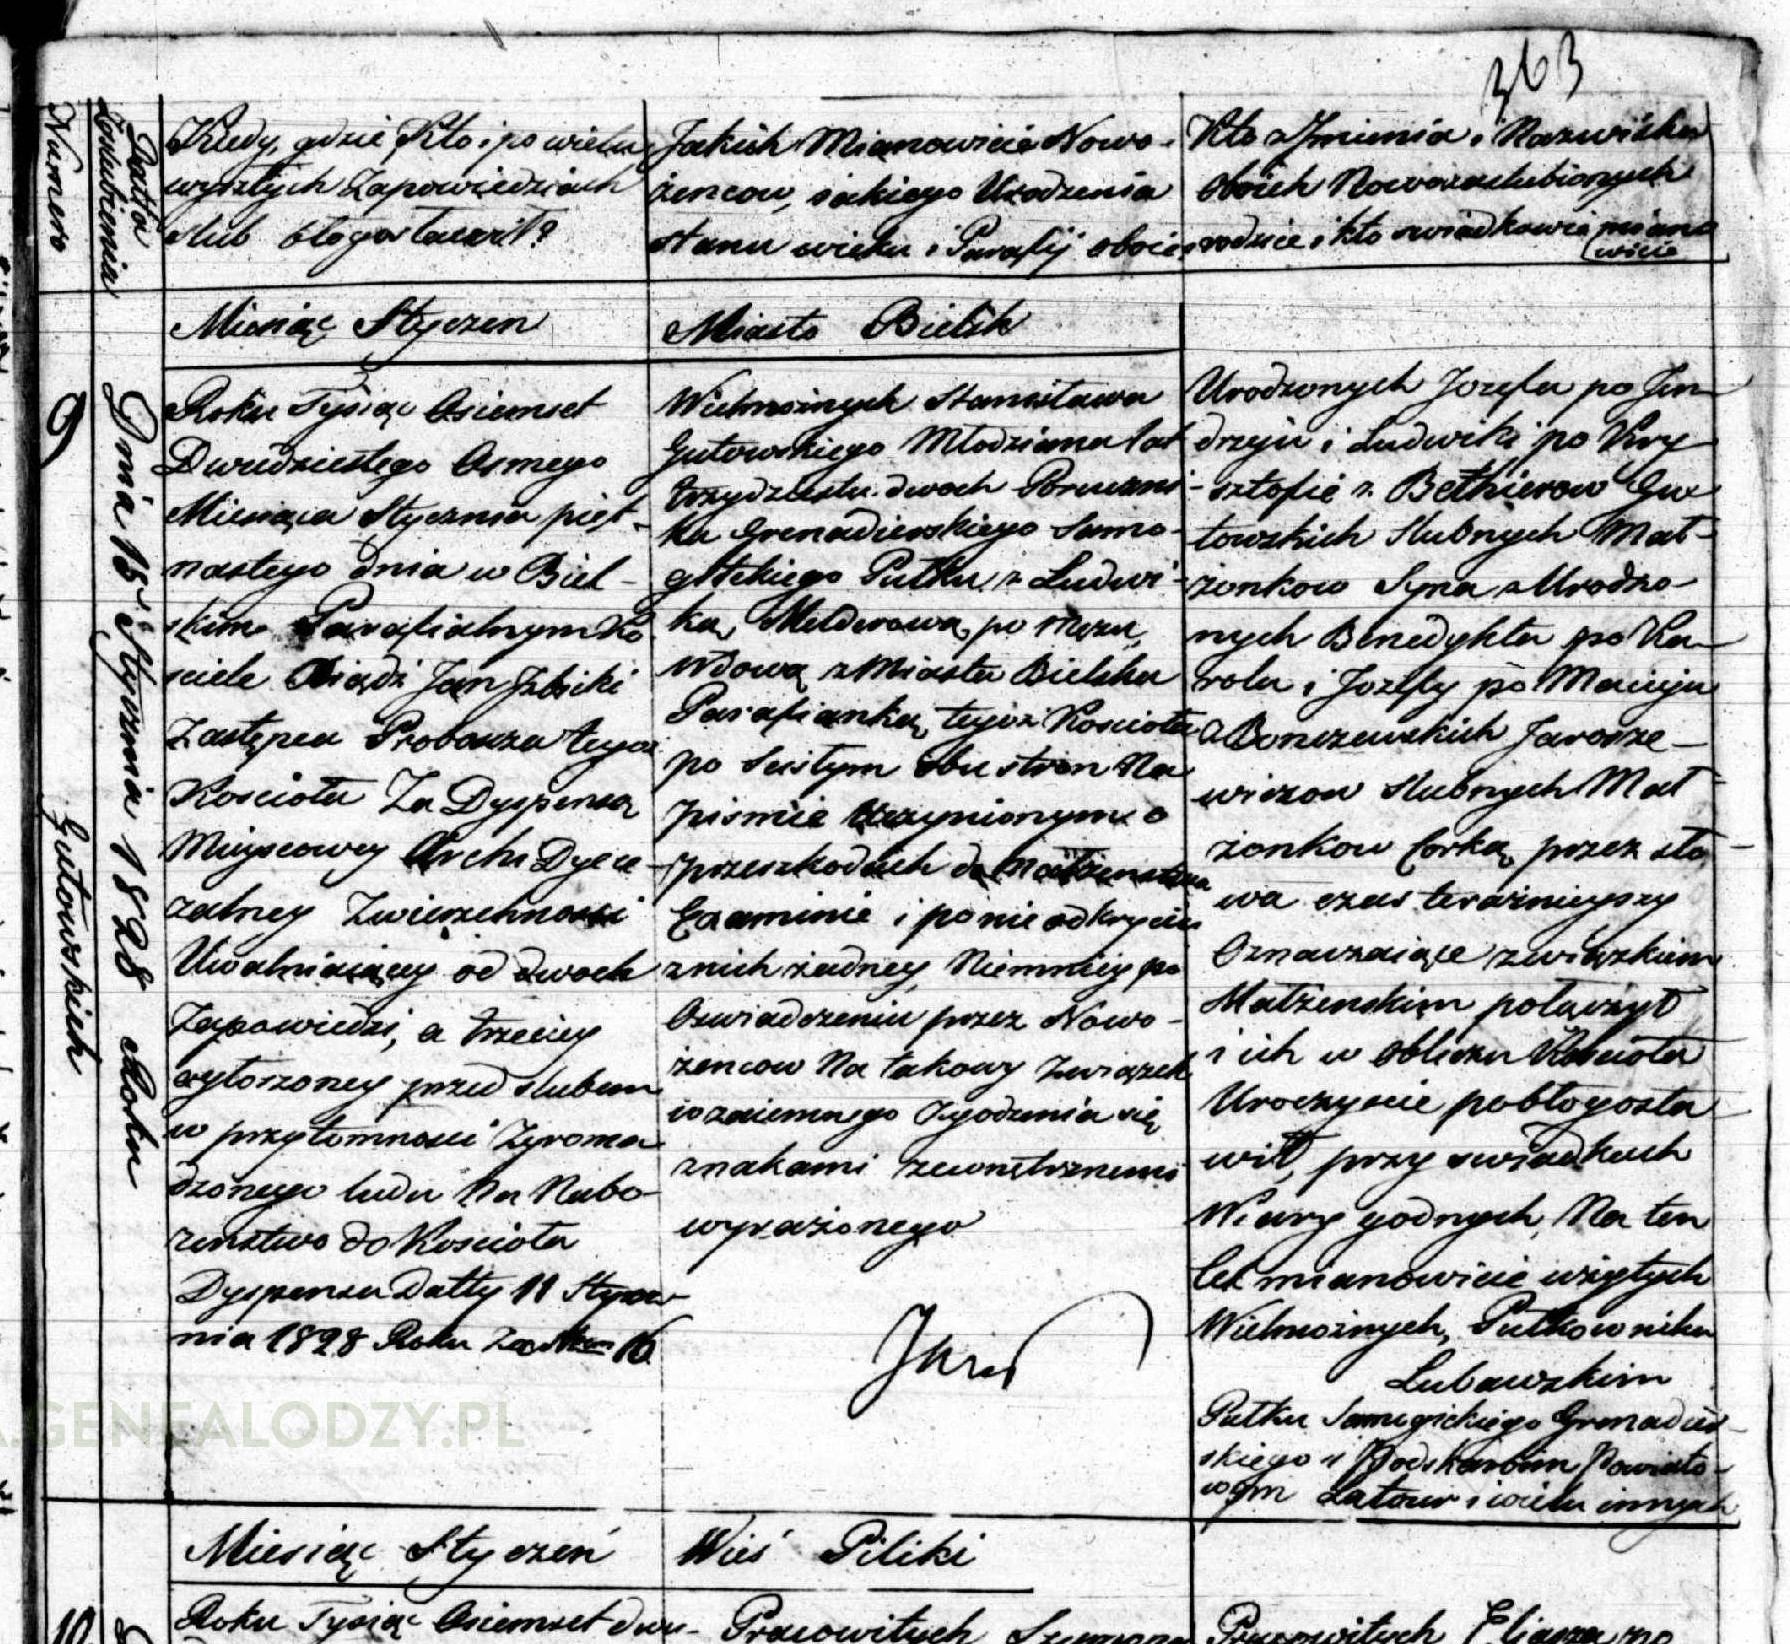 363
Numero
Datta Poslubienia
Kiedy, gdzie, Kto i po wielu
wyszłych Zapowiedziach
slub błogosławił?
Jakich Mianowicie Nowo-
żencow, jakiego Urodzenia
stanu wieku i Parafij oboie
Kto z Jmienia i Nazwiska
oboich Nowozaslubionych
rodzice i kto swiadkowie miano
wicie
Miesiąc Styczen
Miasto Bielsk
9
Gutowskich
Dnia 15 Stycznia 1828 Roku
Roku Tysiąc Osiemset
Dwudziestego Osmego
Miesiąca Stycznia pięt-
nastego dnia w Biel-
skim Parafialnym Ko
sciele Xiądz Jan
Zastępca Proboszcza tegoż
Koscioła Za Dyspensą
Mieyscowey Archi Dyece-
zalney Zwierzchnosci
Uwalniaiącey od dwoch
Zapowiedzi, a trzeciey
ogłoszoney przed slubem
w przytomnosci Zgroma
dzonego ludu Na Nabo-
żenstwo do Kosciola
Dyspensa Datty 11 Stycz-
nia 1828 Roku Za Nrem 16
Wielmożnych Stanisława
Gutowskiego Młodziana lat
trzydziestu dwoch Poruczni
ka Grenadierskiego Samo-
gitskiego Pułku z Ludwi-
ką Melderową po mężu
Wdową z Miasta Bielska
Parafianką tegoż Kosciola
po scisłym obustron Na
pismie uczynionym o
przeszkodach do Małżenstwa
Examinie i po nie odkryciu
znich żadney, Niemniey po
Oswiadczeniu przez Nowo-
żencow Na takowy Związek
wzaiemnego Zgodzenia się
znakami zewnętrznemi
wyrażonego
Urodzonych Jozefa po Jen
drzeju i Ludwiki po Krzy
sztofie z Bethierow Gu
towskich slubnych Mał-
żonkow Syna z Urodzo-
nych Benedykta po Ka-
rolu i Jozefy po Macieju
z Bonczewskich Jarosze-
wiczow slubnych Mał-
żonkow Corką, przez sło
wa czas teraznieyszy
Oznaczaiące związkiem
Małżenskim połączył
i ich w obliczu Kosciola
Uroczyscie pobłogosła
wił, przy swiadkach
Wiary godnych, Na ten
Cel mianowicie wziętych
Wielmożnych, Pułkowniku
Lubawskim
Pułku Samogickiego Grenadier
skiego i Podskarbim Powiato-
wym Latour i wielu innych
Miesiąc Styczeń
Wieś Piliki
10
Roku Tysiąc Osiemset dwu-
Pracowitych
Pracowitych Eliasza po
A.GENEALODZY.PL